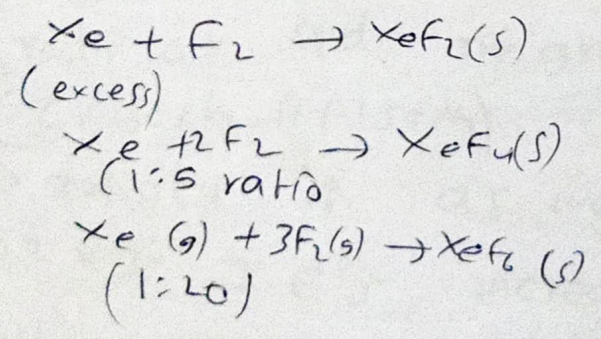 Xe + F2 → XeF2(s)
(excess)
Xe +2F2 → XeF4(s)
(1:5 ratio
Xe (g) + 3F2(g) → XeF6 (s)
(1:20)